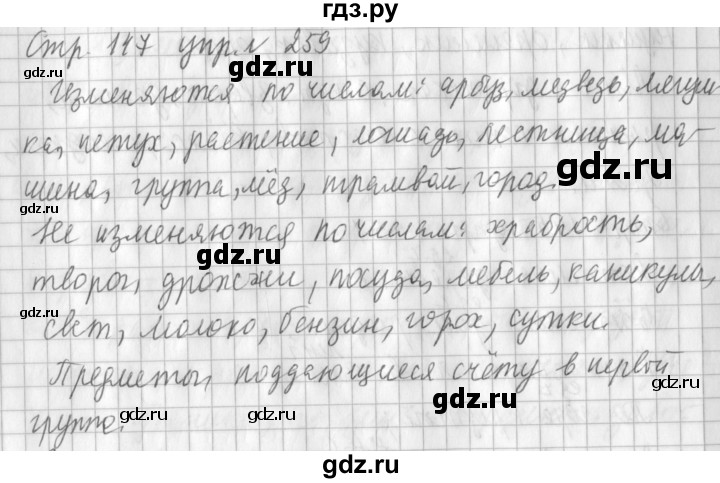 гдз.ру
Стр. 117 упр. 259
Изменяются по числам: арбуз, медведь, лягуш
ка, петух, растение, лошадь, лестница, ма-
шина, группа, мёд, трамвай, город.
Не изменяются по числам: храбрость,
творог, дрожжи, посуда, мебель, каникулы,
свет, молоко, бензин, горох, сутки.
Предметы, поддающиеся счёту в первой
группе.
gdz.ru
gdz.ru
gdz.ru
gdz.ru
gdz.ru
gdz.ru
gdz.ru
gdz.ru
gdz.ru
gdz.ru
gdz.ru
gdz.ru
gdz.ru
gdz.ru